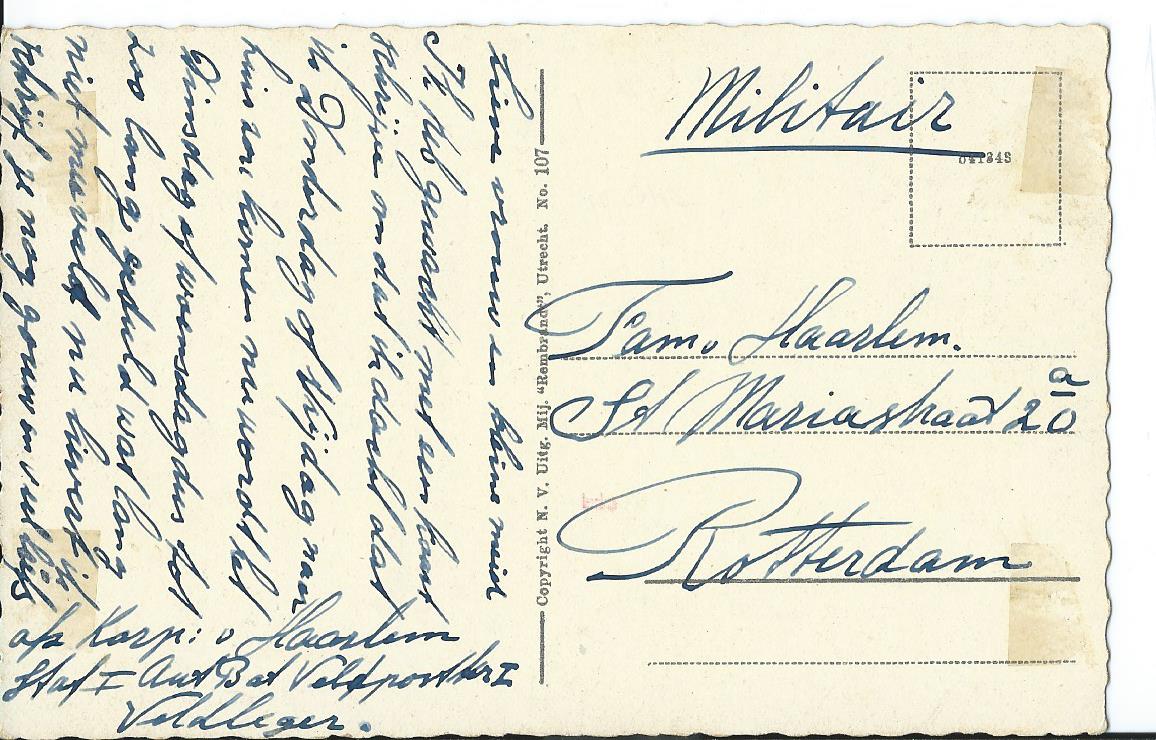 Lieve vrouw en kleine meid
Ik heb gewacht met een kaart
schrijven omdat ik dacht dat
ik Donderdag of Vrijdag naar
huis zou komen nu wordt het
Dinsdag of woensdag dus tot
zoo lang geduld wat lang
niet meevalt nu lieverd ik
schrijf je nog gauw en veel
afz Korp: v Haarlem
Staf I Aut Bat Veldpostktr I
Veldleger.
Copyright N. V. Uitg. Mij. "Rembrandt", Utrecht. No. 107
Militair
Fam. Haarlem.
St Mariastraat 20 a
Rotterdam